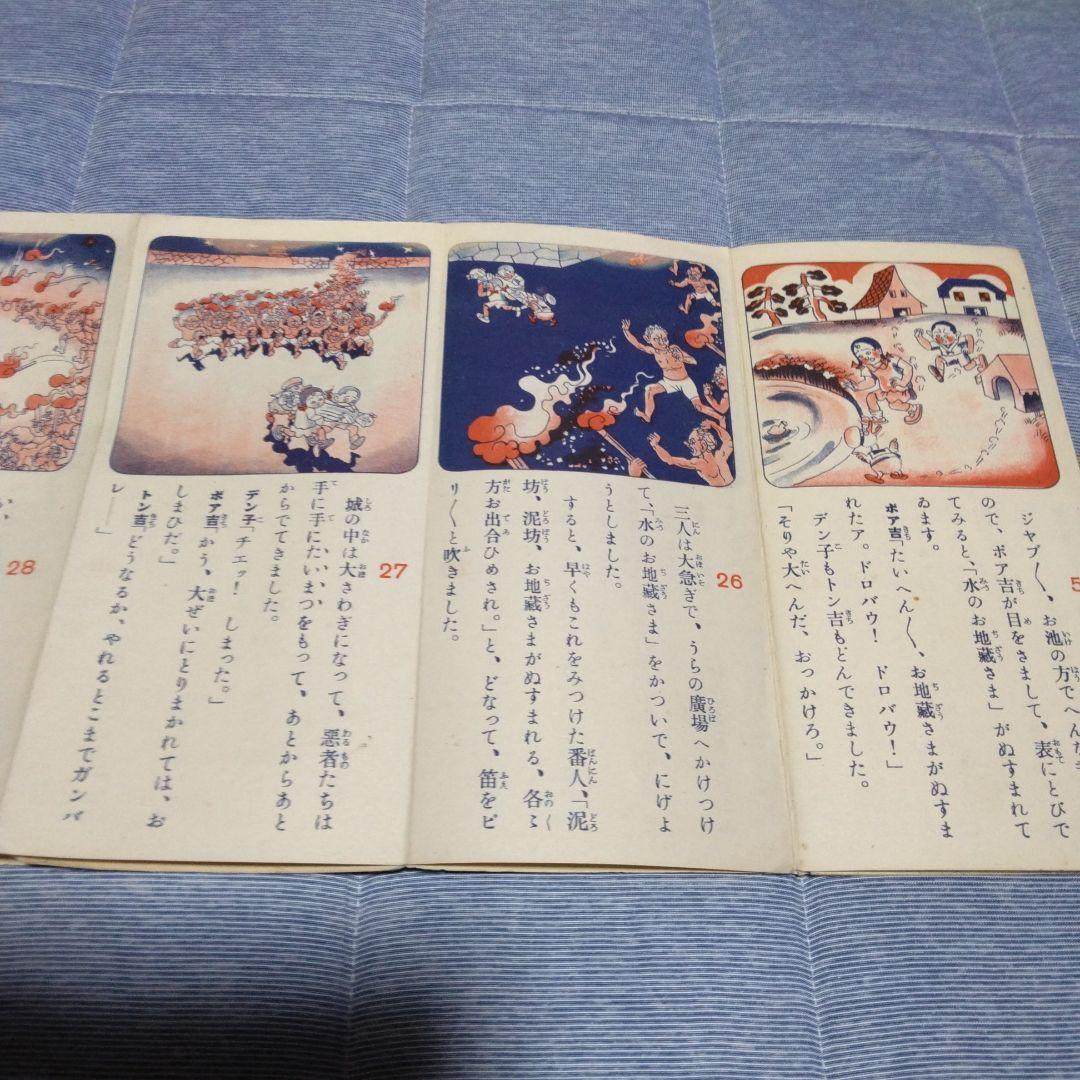 5
ジャブ〳〵、お池の方でへんだ
ので、ボア吉が目をさまして、表にとびで
てみると、「水のお地藏さま」がぬすまれて
ゐます。
ボア吉「たいへん〳〵、お地藏さまがぬすま
れたァ。ドロバウ! ドロバウ!」
デン子もトン吉もとんできました。
「そりや大へんだ、おっかけろ。」
26
三人は大急ぎで、うらの廣場へかけつけ
て、「水のお地藏さま」をかついで、にげよ
うとしました。
すると、早くもこれをみつけた番人、「泥
坊、泥坊、お地藏さまがぬすまれる、各〻
方お出合ひめされ。」と、どなって、笛をピ
リ〳〵と吹きました。
27
城の中は大さわぎになって、悪者たちは
手に手にたいまつをもって、あとからあと
からでてきました。
デン子「チエッ! しまった。」
ボア吉「かう、大ぜいにとりまかれては、お
しまひだ。」
トン吉「どうなるか、やれるとこまでガンバ
レ――」
28